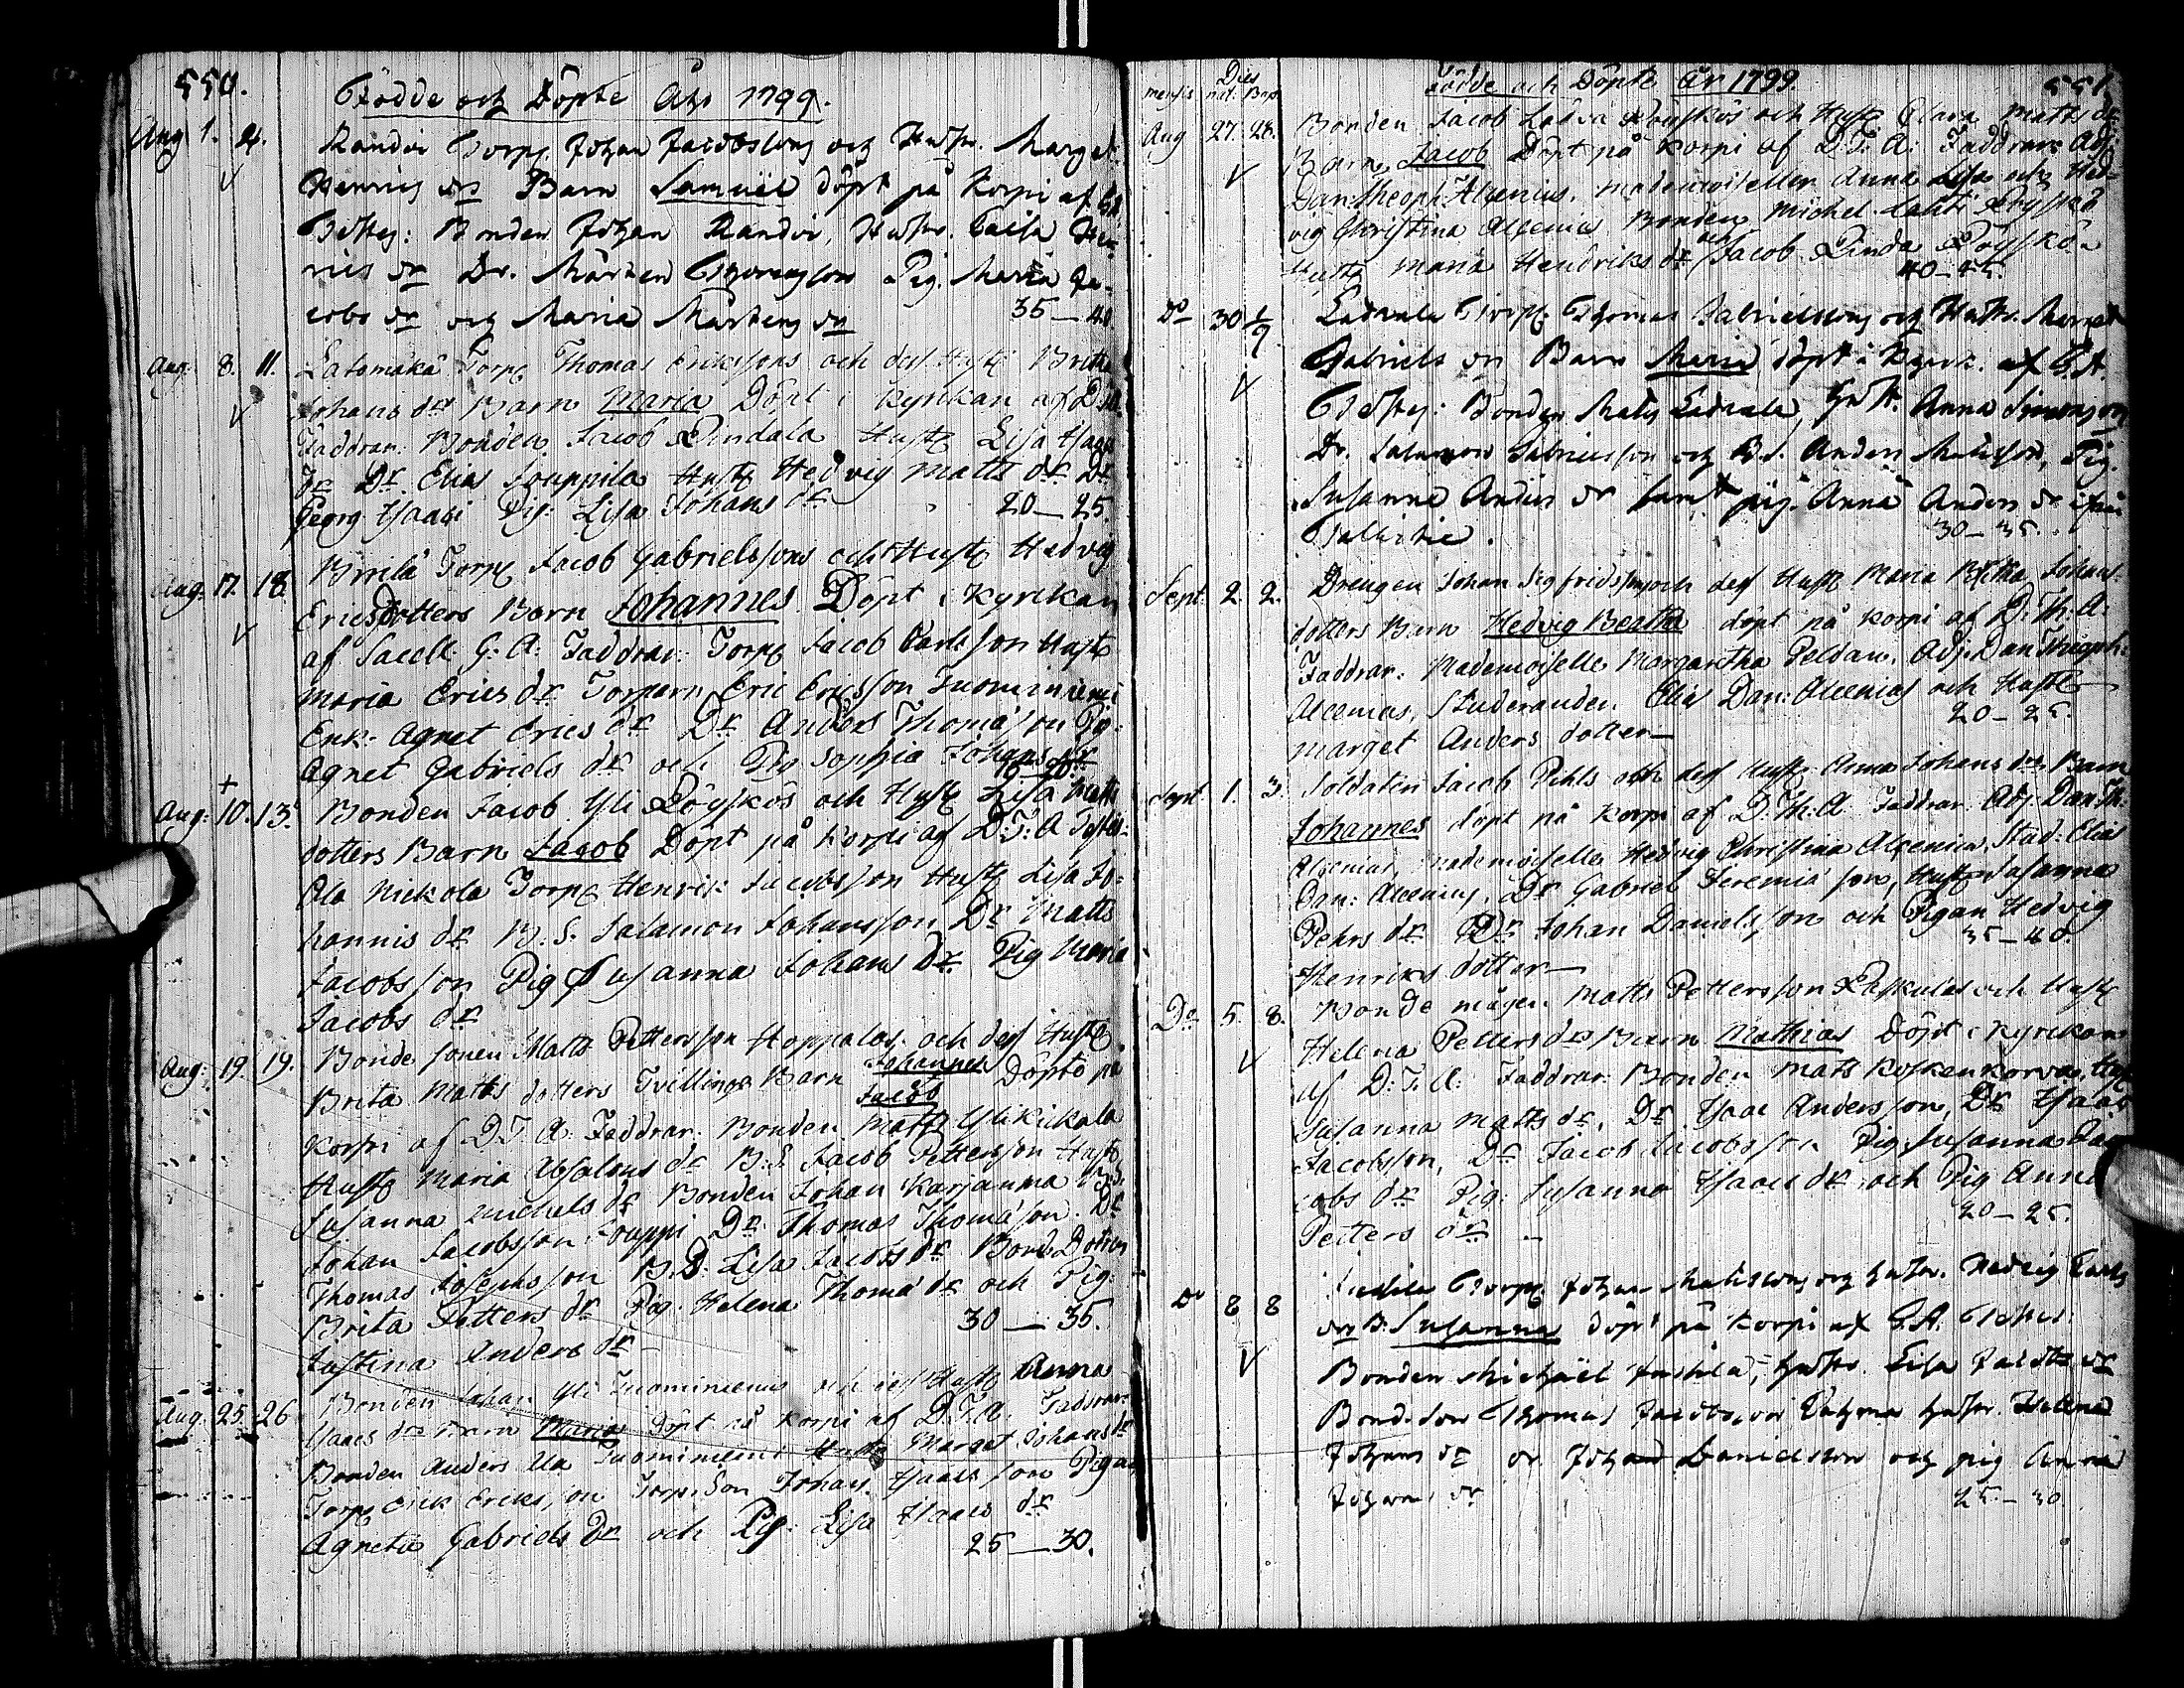 550.
Födde och Döpte Åhr 1799.
Aug. 1. 4. Randoi Torp. Johan Jacobssons och Hustr. Marget
Henrics dr Barn Samuel döpt på Korpi af G.A.
Testes: Bonden Johan Randoi, Hustr. Caisa Hen-
rics dr Dr. Mårten Thomasson Pig. Maria Ja-
cobs dr och Maria Mårtens dr 35–40
Aug. 8. 11. Latomäkä Torp. Thomas Erikssons och dess Hust. Britha
Johans drs Barn Maria Döpt i Kyrkan af D.T.A.
Faddrar: Bonden Jacob Pindala Hust. Lisa Isaacs
dr Dr Elias Souppila Hust. Hedvig Matts dr Dr
Georg Isaaci Pig: Lisa Johans dr 20–25.
Aug. 17. 18. Torp. Jacob Gabrielssons och Hust. Hedvig
Ericsdotters Barn Johannes Döpt i Kyrkan
af Sacell. G. A. Faddrar: Torp. Jacob Carlsson Hust.
Maria Erics dr Torparn Eric Ericsson Tuominiemi
Enk. Agnet Erics dr Dr Anders Thomasson Pig:
Agnet Gabriels dr och Pig Sophia Johans dr
Aug. 10. 13. Bonden Jacob Yli Röyskös och Hust. Lisa Matts
dotters Barn Jacob Döpt på Korpi af D.T.A Testes:
Ala Nickola Torp. Henric Jacobsson Hust. Lisa Jo-
hannis dr B.S. Salamon Johansson Dr Matts
Jacobsson Pig Susanna Johans dr. Pig Maria
Jacobs dr
Aug: 19. 19. Bonde sonen Matts Pettersson Hoppalas och dess Hust.
Brita Matts dotters Tvillinge Barn Johannes Jacob Döpte på
Korpi af D.T.A. Faddrar: Bonden Matts Ylikickala
Hust. Maria Absalons dr B.S. Jacob Pettersson Hust.
Susanna Michels dr Bonden Johan Karjanma
Johan Jacobsson Souppi Dr Thomas Thomasson. Dr
Thomas Josephsson B.D. Lisa Jacobs dr Bond. Dottren
Brita Petters dr Pig. Helena Thoma dr och Pig.
Justina Anders dr 30–35.
Aug. 25. 26 Bonden Johan Yli Tuominiemis och dess Hust. Anna
Isaacs drs Barn Maria Döpt på Korpi af D.T.A. Faddrar:
Bonden Anders Ala Tuominiemi Hust. Marget Johans dr
Torp. Erick Ericsson Torp. Son Johan Isaacsson Pigan
Agneta Gabriels dr och Pig: Lisa Isaacs dr
25–30.
551
mensis Dies nat. Bapt
Födde och Döpte År 1799.
Aug 27. 28. Bonden Jacob Ladva Röyskös och Hust. Clara Matts dr
Barn, Jacob Döpt på Korpi af D.T.A: Faddrar: Adj.
Dan Theoph. Alcenius. Mademoisellen Anna Lisa och Hed-
vig Christina Alcenius Bonden Michel Lahti Röyskö
Hust. Maria Hendriks dr och Jacob Linda Röyskö
40–45.
Do 30 1/9 Ladvala Torp. Thomas Gabrielssons och Hustr. Marget
Gabriels drs Barn Maria döpt i Kyrk. af G.A.
Testes: Bonden Mats Ladvala, Hustr. Anna Simons dr
Dr. Salamon Gabrielsson och B.S. Anders Matsson, Pig.
Susanna Anders dr samt pig. Anna Anders dr ifrån
30–35.
Sept. 2. 2. Drengen Johan Sigfridsson och dess Hust. Maria Britha Johans
dotters Barn Hedvig Beatha döpt på Korpi af D.Th.A.
Faddrar: Mademoiselle Margaretha Peldan. Adj. Dan Theoph.
Alcenius, Studeranden Elias Dan: Alcenius och Hust.
Marget Anders dotter 20–25.
Sept 1. 3. Soldaten Jacob Pihls och dess Hust. Anna Johans drs Barn
Johannes döpt på Korpi af D.Th.A. Faddrar Adj. Dan Th.
Alcenius, Mademoiselle Hedvig Christina Alcenius, Stud: Elias
Dan: Alcenius, Dr Gabriel Jeremiasson, Hust. Susanna
Pehrs dr Dr Johan Danielsson och Pigan Hedvig
Henriks dotter 35–40.
Do 5. 8. Bonde mågen Matts Pettersson Laskulas och Hust.
Helena Petters drs Barn Mathias Döpt i Kyrkan
af D.T.A: Faddrar: Bonden Mats Koskenkorva, Hust.
Susanna Matts dr, Dr Isaac Andersson, Dr Isaac
Jacobsson, Dr Jacob Jacobsson Pig. Susanna Ja-
cobs dr Pig: Susanna Isaacs dr och Pig Anna
Petters dr 20–25.
Do 8 8 Torp. Johan Matssons och Hustr. Hedvig Carls
drs B. Susanna döpt på Korpi af G.A. Testes:
Bonden Michaël, Hustr. Lisa Jacobs dr
Bond. Son Thomas Jacobsson Hustr. Helena
Johans dr dr Johan Danielsson och pig Anna
Johans dr 25–30